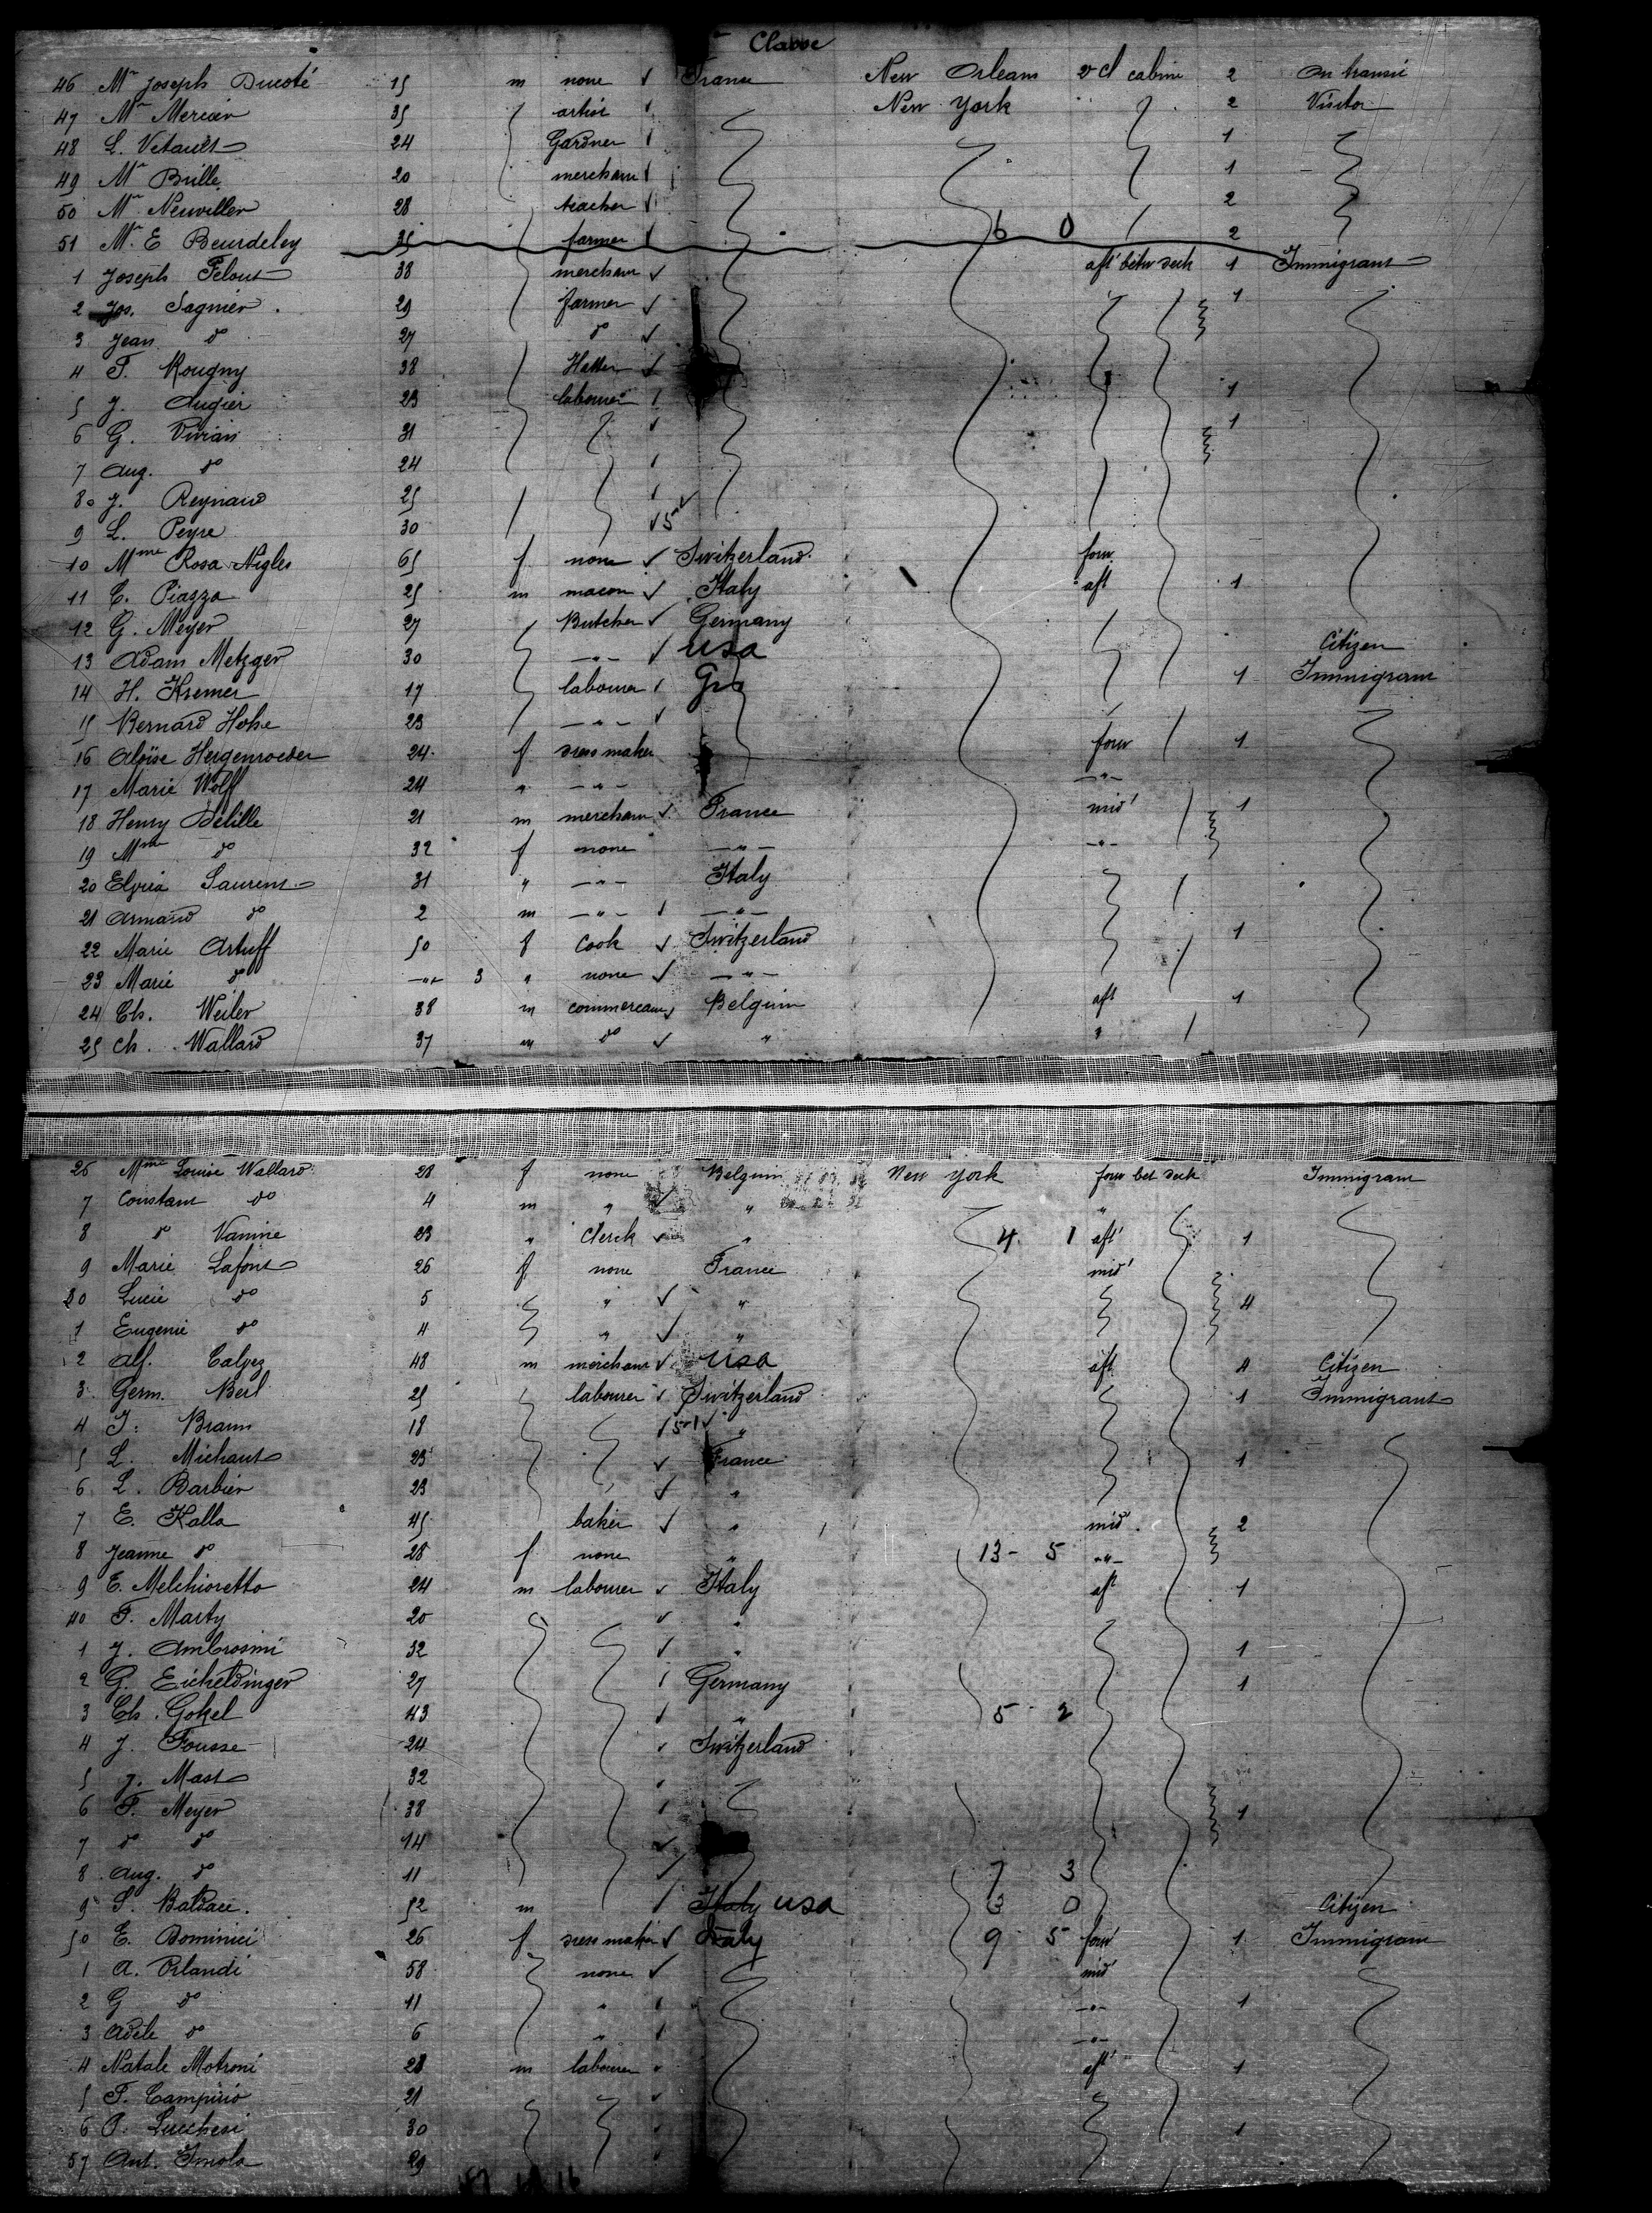 Classe
46 Mr Joseph Ducoté 15 m none ✓ France New Orleans 2d cabine 2 On transit
47 Mr Mercier 35 artist New York 2 Visitor
48 L. Vetault 24 Gardner 1
49 Mr Brille 20 merchant 1
50 Mr Neuviller 28 teacher 2
51 Mr E Beurdeley 35 farmer 6 0 2
1 Joseph Pelout 38 merchant ✓ aft betw deck 1 Immigrant
2 Jos. Sagnier 29 farmer ✓ 1
3 Jean do 27 do ✓
4 F. Rougny 38 Hatter ✓
5 J. Augier 23 labourer 1
6 G. Vivian 31 ✓ 1
7 Aug. do 24
8 J. Reynaud 25
9 L. Peyre 30 ✓
10 Mme Rosa Nigles 65 f none ✓ Switzerland forw.
11 C. Piazza 25 m macon ✓ Italy aft 1
12 G. Meyer 27 Butcher ✓ Germany
13 Adam Metzger 30 -"- ✓ USA Citizen
14 H. Kremer 17 labourer Gr 1 Immigrant
15 Bernard Hohe 23 -"- ✓
16 Aloïse Hergenroeder 24 f dress maker forw 1
17 Marie Wolff 24 " -"- -"-
18 Henry Délille 21 m merchant ✓ France mid 1
19 Mme do 32 f none -"- -"-
20 Elyria Laurent 31 " -"- Italy
21 Armand do 2 m -"- -"-
22 Marie Artuff 50 f Cook ✓ Switzerland 1
23 Marie do -"- 3 " none ✓ -"-
24 Ch. Weiler 38 m commercant Belgium aft 1
25 Ch. Wallard 37 m do ✓ " "
26 Mme Louise Wallard 28 f none Belgium New York forw bet deck Immigrant
7 Constant do 4 m " ✓ " "
8 do Vanine 23 " Clerck ✓ " 4 1 aft 1
9 Marie Lafont 26 f none France mid
30 Lucie do 5 " ✓ " 4
1 Eugenie do 4 " ✓ "
2 Alf. Calyez 48 m merchant ✓ USA aft 4 Citizen
3 Germ. Berl 25 labourer ✓ Switzerland 1 Immigrant
4 J. Braun 18 "
5 L. Michaut 23 ✓ France 1
6 L. Barbier 23 ✓ "
7 E. Kalla 45 baker ✓ " mid 2
8 Jeanne do 28 f none " 13 - 5 -"-
9 E. Melchioretto 24 m labourer ✓ Italy aft 1
40 F. Marty 20 ✓ "
1 J. Ambrosini 32 ✓ " 1
2 G. Eicheldinger 27 Germany 1
3 Ch. Gokel 43 " 5 2
4 J. Fousse 24 Switzerland
5 J. Mast 32
6 F. Meyer 38 1
7 do do 14 ✓
8 Aug. do 11 ✓ 7 3
9 S. Baldacci 52 m Italy USA 3 0 Citizen
50 E. Dominici 26 f dress maker ✓ Italy 9 5 forw 1 Immigrant
1 A. Orlandi 58 none ✓ mid
2 G do 11 " -"- 1
3 Adèle do 6 " -"-
4 Natale Motroni 28 m labourer aft 1
5 F. Campirio 21
6 P. Lucchesi 30 1
57 Ant. Imola 29